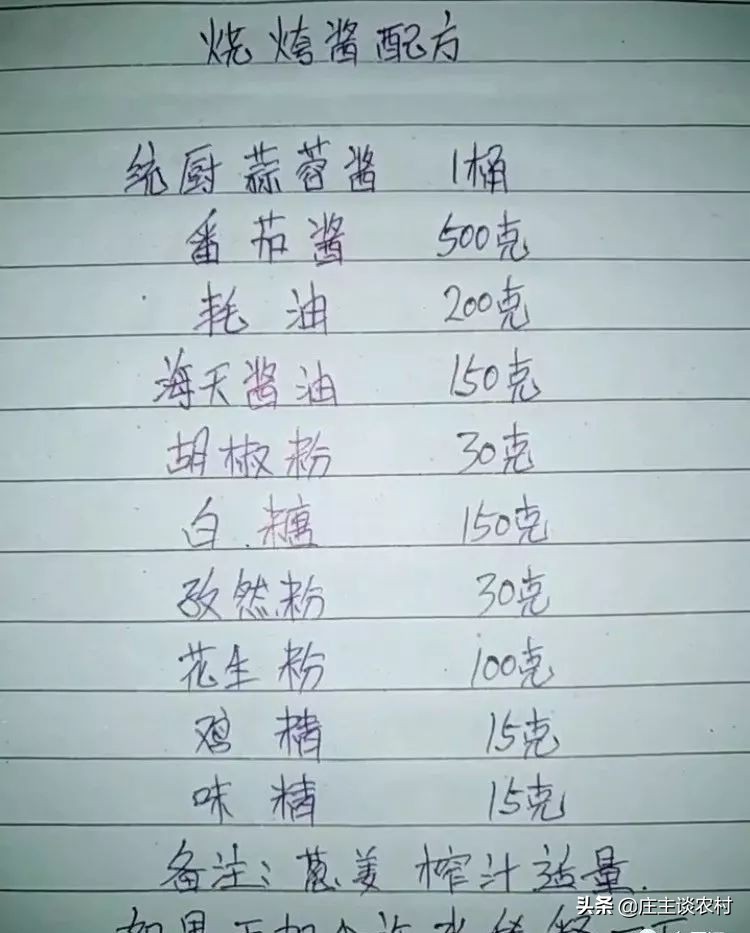 烧烤酱配方
统厨蒜蓉酱 1桶
番茄酱 500克
耗油 200克
海天酱油 150克
胡椒粉 30克
白糖 150克
孜然粉 30克
花生粉 100克
鸡精 15克
味精 15克
备注：葱姜榨汁适量.
头条 @庄主谈农村